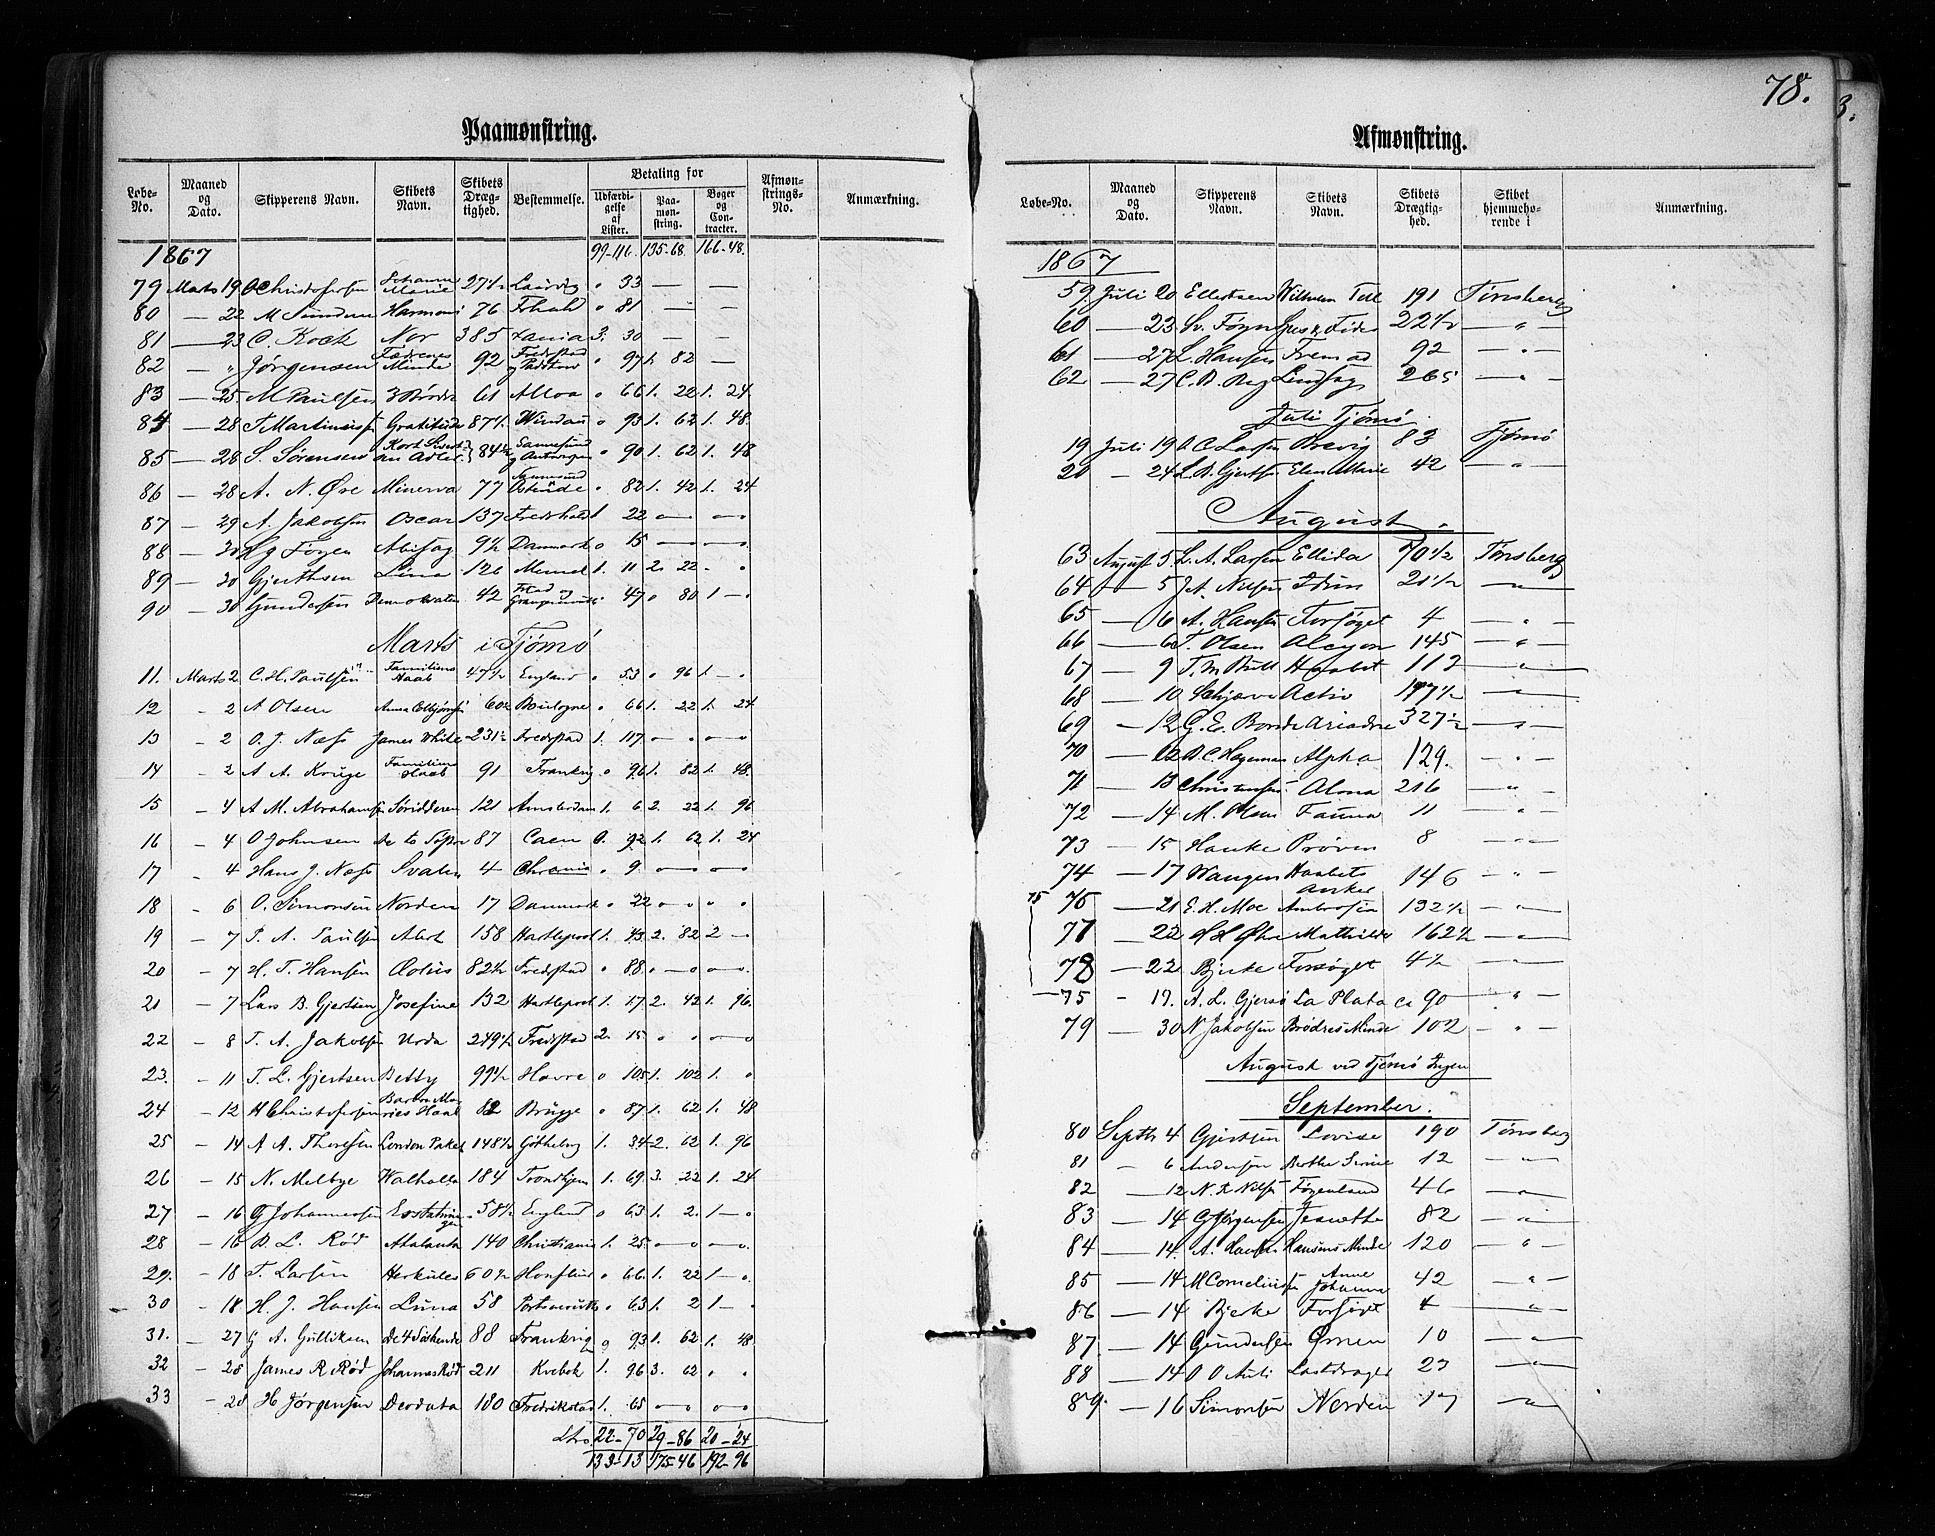 78.
Paamønstring.
Løbe-No. Maaned og Dato. Skipperens Navn. Skibets Navn. Skibets Dræg-tighed. Bestemmelse. Betaling for Udfærdi-gelse af Lister. Paa-møn-string. Bøger og Con-tracter. Afmøn-strings-No. Anmærkning.
1867 135-68. 166-48.
79 Marts 19 Christofersen Johanne Marie 27½ Laurvig " 33 — —
80 — 22 M 76 " 81 — —
81 — 23 C. Kock Nor 385 3. 30 — —
82 — " Jørgensen Fædrenes Minde 92 Fredrstad " 97 1. 82 —
83 — 25 M Paulsen 3 Brødre 61 Alloa " 66 1. 22 1. 24
84 — 28 T Martinius Gratitude 87½ Windau " 93 1. 62 1. 48
85 — 28 S. Sørensen Adler 84½ Sannesund og Antwerpen " 90 1. 62 1. 48
86 — 28 A. N. Øre Minerva 77 Sannesund Ostende " 82 1. 42 1. 24
87 — 29 A. Jakobsen Oscar 137 Fredrhald 1. 22 — —
88 — 30 H g Foyen Abisag 9½ Danmark " 15 — —
89 — 30 Gjerthsen Lina 126 Memel 1. 11 2. 22 - "
90 — 30 Gundersen Demokraten 42 Fstad og " 47 " 80 1 — "
Marts i Tjømø
11. Marts 2 C. H. Paulsen Familiens Haab 47½ England " 53 " 96 1 — "
12 - 2 A Olsen 60½ Boulogne " 66 1. 22 1. 24
13 - 2 O. J. Næss James White 231½ Fredrstad 1. 117 — " — "
14 - 2 A A. Kruge Familiens Haab 91 Frankrig " 96 1. 82 1. 48
15 - 4 A M. Abrahamsen Søridderen 121 Amsterdam 1. 6 2. 22 1. 96
16 - 4 O Johnsen de to 87 Caen 0. 92 1. 62 1. 24
17 - 4 Hans J. Næss Svalen 4 Chrania " 9 — —
18 - 6 O. Simonsen Norden 17 Danmark " 22 — " " "
19 - 7 P. A. Paulsen Abert 158 Hartlepool 1. 43 2. 82 2 — "
20 - 7 H. T. Hansen Æolus 82½ Fredrstad " 88 " — —
21 - 7 Lars B. Gjertsen Josefine 132 Hartlepool 1. 17 2. 42 1. 96
22 - 8 T. A. Jakobsen Urda 249½ Fredrstad 2. 15 " " — "
23. - 11 T. L. Gjertsen Betty 99½ Havre " 105 1. 102 1. "
24 - 12 H Christofersen Barbra Maries Haab 82 Brügge " 87 1. 62 1. 48
25 - 14 A A. Thoresen London Paket 148½ Götheborg 1. 34 2. 62 1. 96
26 - 15 N. Melbye Walhalla 184 Trondhjem 1. 69 3. 22 1. 24
27 - 16 G Johannessen 58½ England " 63 1. 2 1 — "
28 - 16 B. L. Rød Atalanta 140 Christiania 1. 25 — —
29. - 18 T. Larsen Herkules 60½ Honfleur " 66 1. 22 1 — "
30 - 18 H. J. Hansen Luna 58 Portsmouth " 63 1. 2 1 — "
31. - 27 G A. Gulliksen De 4 Søskende 88 Frankrig " 93 1. 62 1. 48
32 - 28 James R Rød Johannes Rød 211 Kvebek 1. 96 3. 62 " "
33 - 28 H Jørgensen Deodata 180 Fredrikstad 1. 65 — —
22-70 29-86 20-24
133-13 175-46 192-96
Afmønstring.
Løbe-No. Maaned og Dato. Skipperens Navn. Skibets Navn. Skibets Drægtig-hed. Skibet hjemmehø-rende i Anmærkning.
1867
59 Juli 20 Ellertsen Wilhelm Tell 191 Tønsberg
60 — 23 Sv. Føyn 22½ — " —
61 — 27 L. Hansen Fremad 92 — " —
62 — 27 C. B. Bug Lindsay 265 — " —
Juli Tjømø
19 Juli 19 O. C Larsen Brevig 83 Tjømø
20 — 24 L. B. Gjertsen Elen Marie 42 — " —
August.
63 August 5 L. A. Larsen Ellida 70½ Tønsberg
64 — 5 A. Nilsen Idun 21½ — " —
65 — 6 A. Hansen Forsøget 4 — " —
66 — 6 T. Olsen Alcyon 145 — " —
67 — 9 T. M Bull Haabet 113 — " —
68 — 10 Schjøve Activ 197½ — " —
69 - 12 G. E. Borde Ariadne 327½ — " —
70 — 12 B. C. Hageman Alpha 129. - " -
71 — 13 Christensen Alona 216 — " —
72 — 14 M. Olsen Fauna 11 — " —
73 — 15 Hanke Prøven 8 — " —
74 — 17 Wangen Haabets Anker 146 - " -
75 76 — 21 E. H. Moe Ambrosia 132½ — " —
77 — 22 H H Øhre Mathilde 162½ — " —
78 — 22 Bjerke Forsøget 4½ — " —
75 - 17. A. L. Gjersø La Plata ca 90 — " —
79 — 30 N Jakobsen Brødres Minde 102 — " —
August ved Tjømø Ingen
September.
80 Septbr 4 Gjertsen Lovise 190 Tønsberg
81 - 6 Andersen Berthe Sirine 12 — " —
82 - 12 N. Nilsen Føyenland 46 — " —
83 — 14 G Jørgensen Jeanette 82 — " —
84 — 14. A. Hansen Hansens Minde 120 — " —
85 — 14 M Corneliussen Anne Johanna 42 - " -
86 — 14 Bjerke Forsøget 4 — " —
87 — 14 Gundersen Ørnen 10 — " —
88 — 14 O O Auli Lastdrager 23 — " —
89. — 16 Simonsen Norden 17 — " —